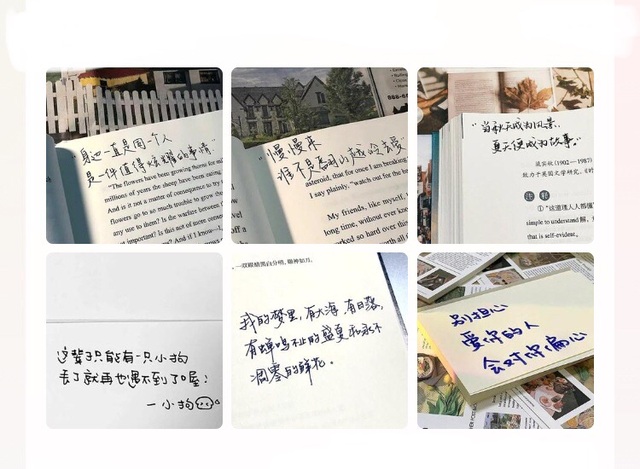 "身边一直是同一个人
是一件值得炫耀的事情"
"The flowers have been growing thorns for mil
millions of years the sheep have been eating
And is it not a matter of consequence to try
flowers go to so much trouble to grow
any use to them? Is the warfare between
important? Is this not of more
"慢慢来
谁不是翻山越岭去爱
asteroid, that for once I am breaking
I say plainly, "watch out for the
My friends, like myself,
long time, without ever
worked so hard over
"当秋天成为风景
夏天便成为故事"
梁实秋 (1902—1987)
致力于英国文学研究,
注释
① "这道理人人都懂
simple to understand
that is self-evident.
这辈子只能有一只小狗
丢了就再也遇不到了喔:
一小狗
一双眼睛黑白分明,精神如月。
我的梦里,有大海,有日落,
有蝉鸣不止的盛夏和永不
凋零的鲜花。
别担心
爱你的人
会对你偏心